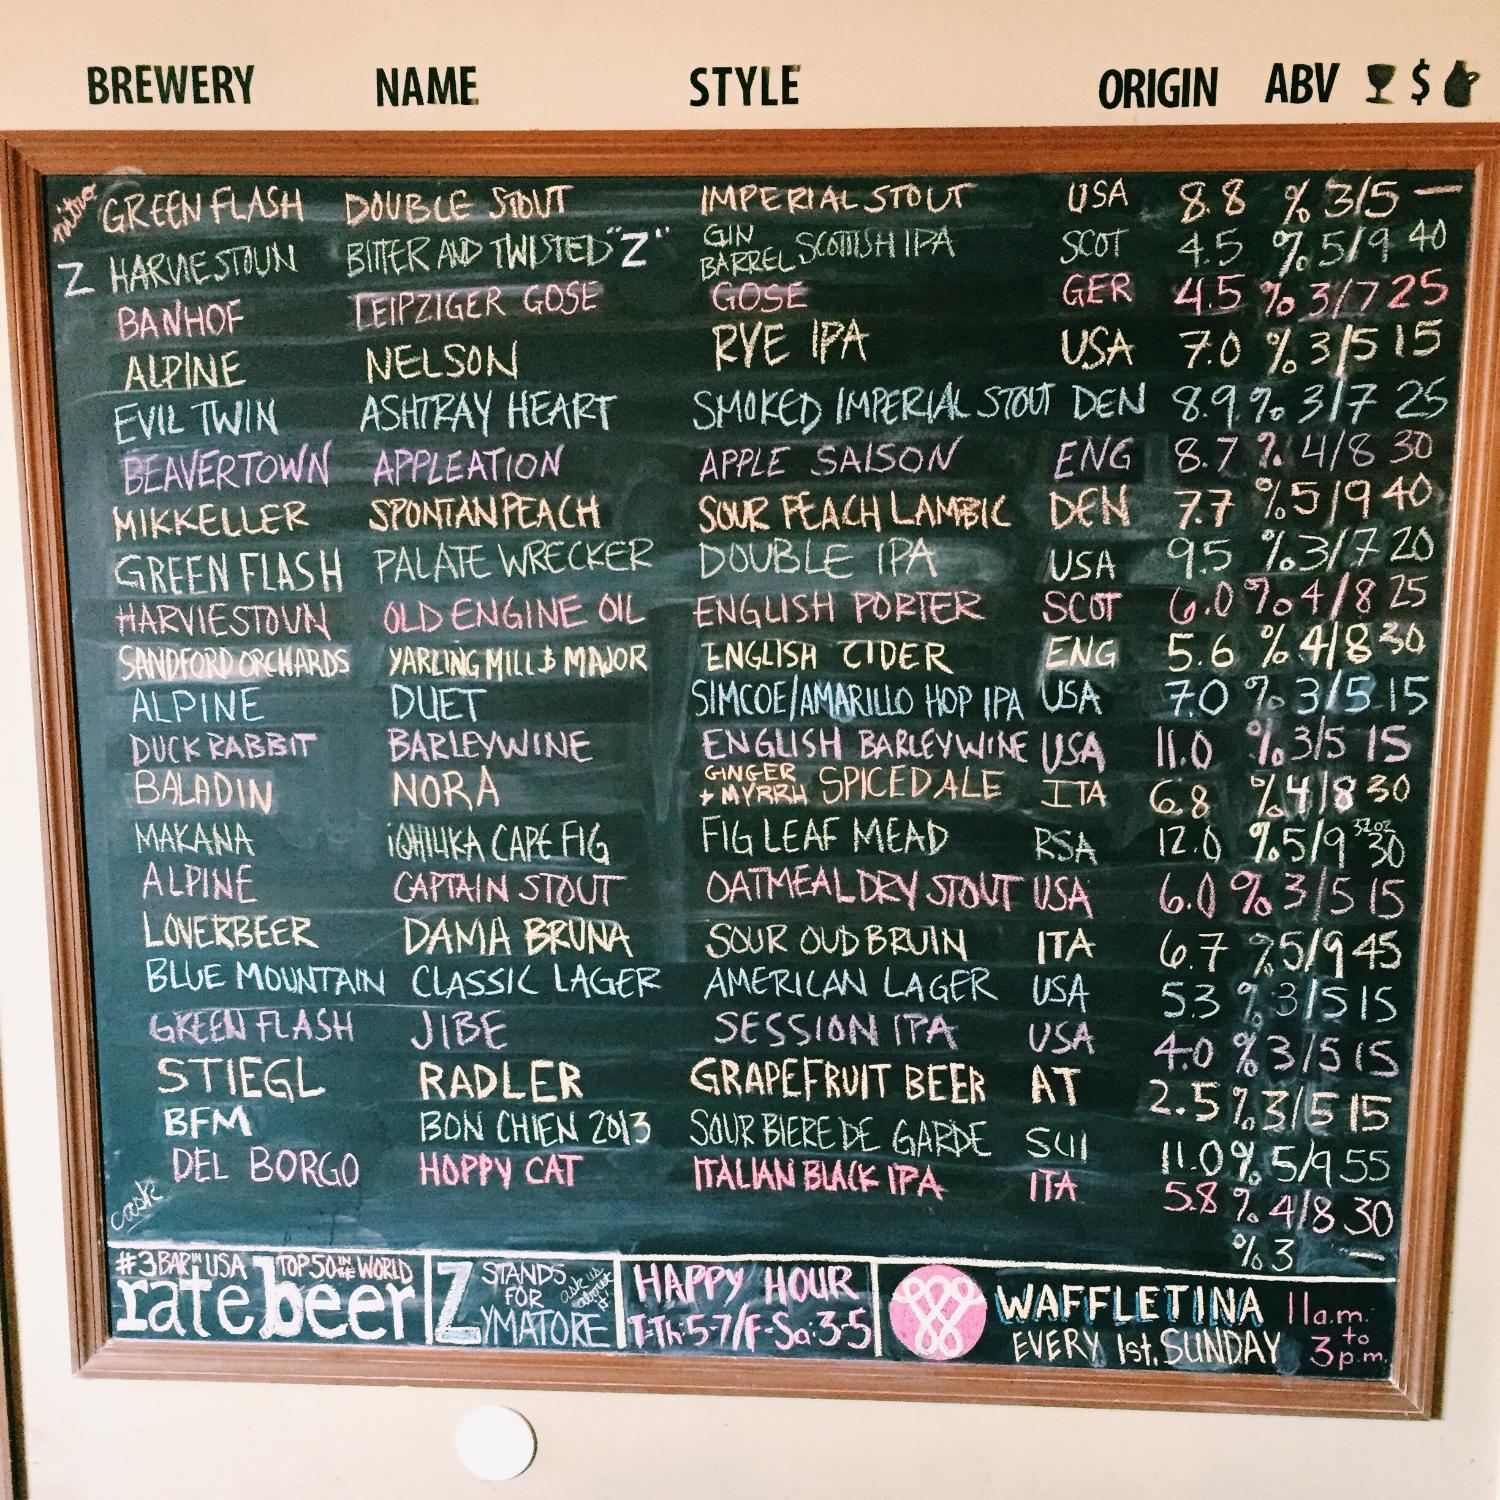 BREWERY NAME STYLE ORIGIN ABV $
nitro GREEN FLASH DOUBLE STOUT IMPERIAL STOUT USA 8.8 % 3/5 —
Z HARVIESTOUN BITTER AND TWISTED "Z" GIN BARREL SCOTTISH IPA SCOT 4.5 % 5/9 40
BANHOF LEIPZIGER GOSE GOSE GER 4.5 % 3/7 25
ALPINE NELSON RYE IPA USA 7.0 % 3/5 15
EVIL TWIN ASHTRAY HEART SMOKED IMPERIAL STOUT DEN 8.9 % 3/7 25
BEAVERTOWN APPLEATION APPLE SAISON ENG 8.7 % 4/8 30
MIKKELLER SPONTANPEACH SOUR PEACH LAMBIC DEN 7.7 % 5/9 40
GREEN FLASH PALATE WRECKER DOUBLE IPA USA 9.5 % 3/7 20
HARVIESTOUN OLD ENGINE OIL ENGLISH PORTER SCOT 6.0 % 4/8 25
SANDFORD ORCHARDS YARLING MILL & MAJOR ENGLISH CIDER ENG 5.6 % 4/8 30
ALPINE DUET SIMCOE/AMARILLO HOP IPA USA 7.0 % 3/5 15
DUCK RABBIT BARLEYWINE ENGLISH BARLEYWINE USA 11.0 % 3/5 15
BALADIN NORA GINGER + MYRRH SPICED ALE ITA 6.8 % 4/8 30
MAKANA iQHILIKA CAPE FIG FIG LEAF MEAD RSA 12.0 % 5/9 32oz 30
ALPINE CAPTAIN STOUT OATMEAL DRY STOUT USA 6.0 % 3/5 15
LOVERBEER DAMA BRUNA SOUR OUD BRUIN ITA 6.7 % 5/9 45
BLUE MOUNTAIN CLASSIC LAGER AMERICAN LAGER USA 5.3 % 3/5 15
GREEN FLASH JIBE SESSION IPA USA 4.0 % 3/5 15
STIEGL RADLER GRAPEFRUIT BEER AT 2.5 % 3/5 15
BFM BON CHIEN 2013 SOUR BIERE DE GARDE SUI 11.0 % 5/9 55
DEL BORGO HOPPY CAT ITALIAN BLACK IPA ITA 5.8 % 4/8 30
cask % 3 —
#3 BAR IN USA TOP 50 IN THE WORLD
ratebeer
Z STANDS FOR YMATORE
ask us about it!
HAPPY HOUR
T-Th: 5-7/F-Sa: 3-5
WAFFLETINA 11a.m. to 3p.m.
EVERY 1st. SUNDAY